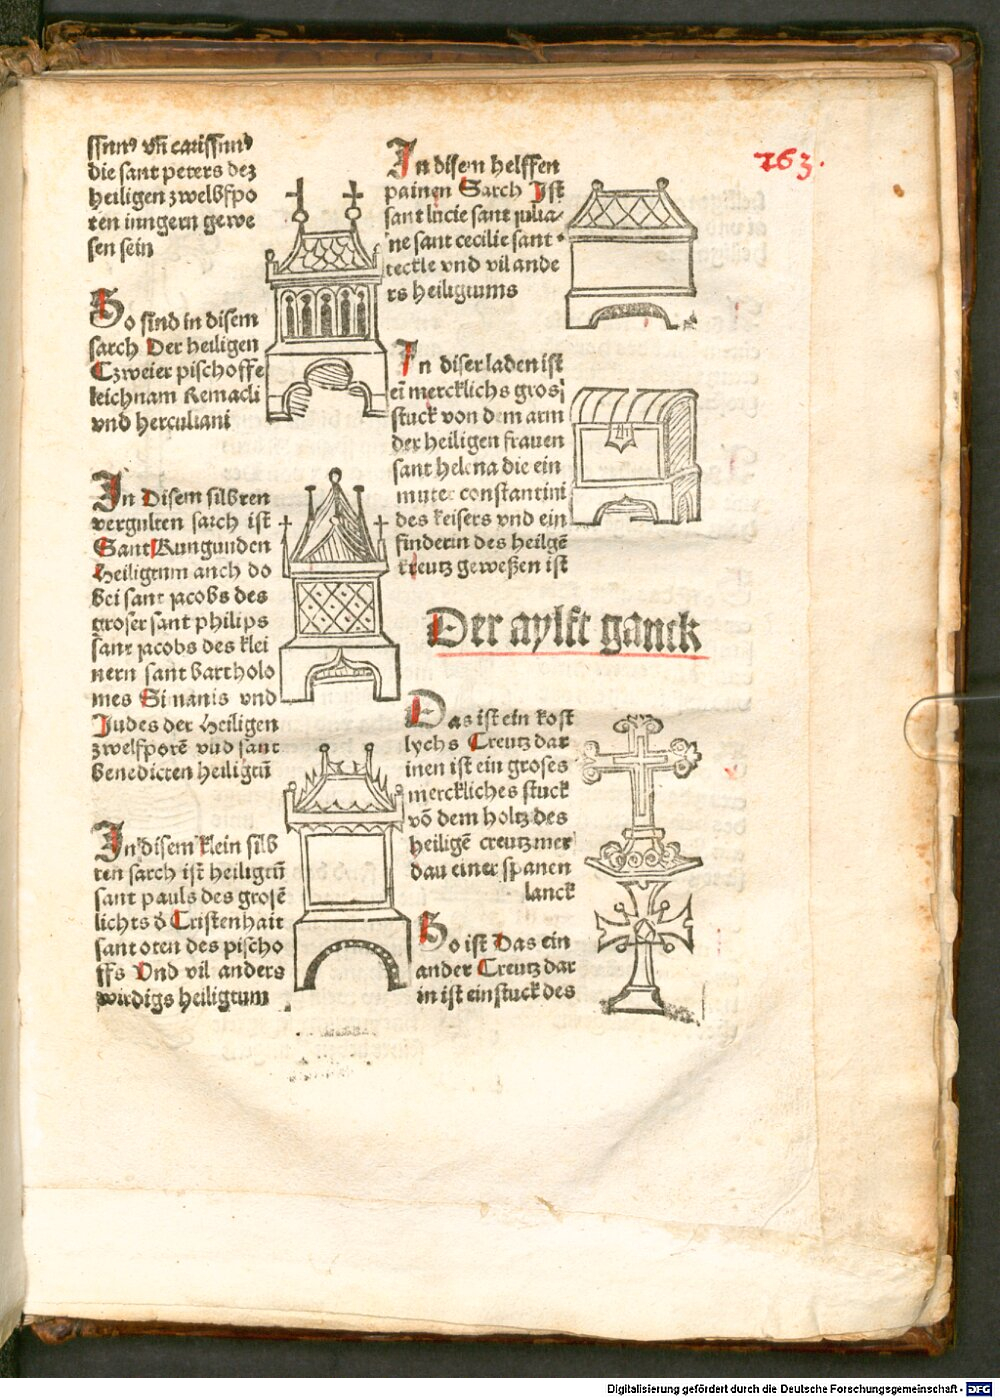 ssimꝰ vñ carissimꝰ
die sant peters dez
heiligen zwelbfpo
ten iungern gewe
sen sein
So sind in disem
sarch Der heiligen
Czweier pischoffe
leichnam Remacli
vnd herculiani
In Disem silbren
vergulten sarch ist
Sant Kungunden
Heiligtum auch do
bei sant jacobs des
groser sant philips
sant jacobs des klei
nern sant bartholo
mes Simanis vnd
Judes der Heiligen
zwelfporē vnd sant
benedicten heiligtū
In disem klein silb
ren sarch ist heiligtū
sant pauls des grosē
lichts ð Cristenhait
sant oten des pischo
ffs Vnd vil anders
wirdigs heiligtum
163.
In disem helffen
painen Sarch Ist
sant lucie sant julia-
ne sant cecilie sant
teckle vnd vil ande
rs heiligtums
In diser laden ist
eī mercklichs gros
stuck von dem arm
der heiligen frauen
sant helena die ein
muter constantini
des keisers vnd ein
finderin des heilgē
kreutz geweßen ist
Der aylft ganck
Das ist ein kost
lychs Creutz dar
inen ist ein groses
merckliches stuck
vō dem holtz des
heiligē creutz mer
dan einer spanen
lanck
So ist Das ein
ander Creutz dar
in ist ein stuck des
Digitalisierung gefördert durch die Deutsche Forschungsgemeinschaft - DFG